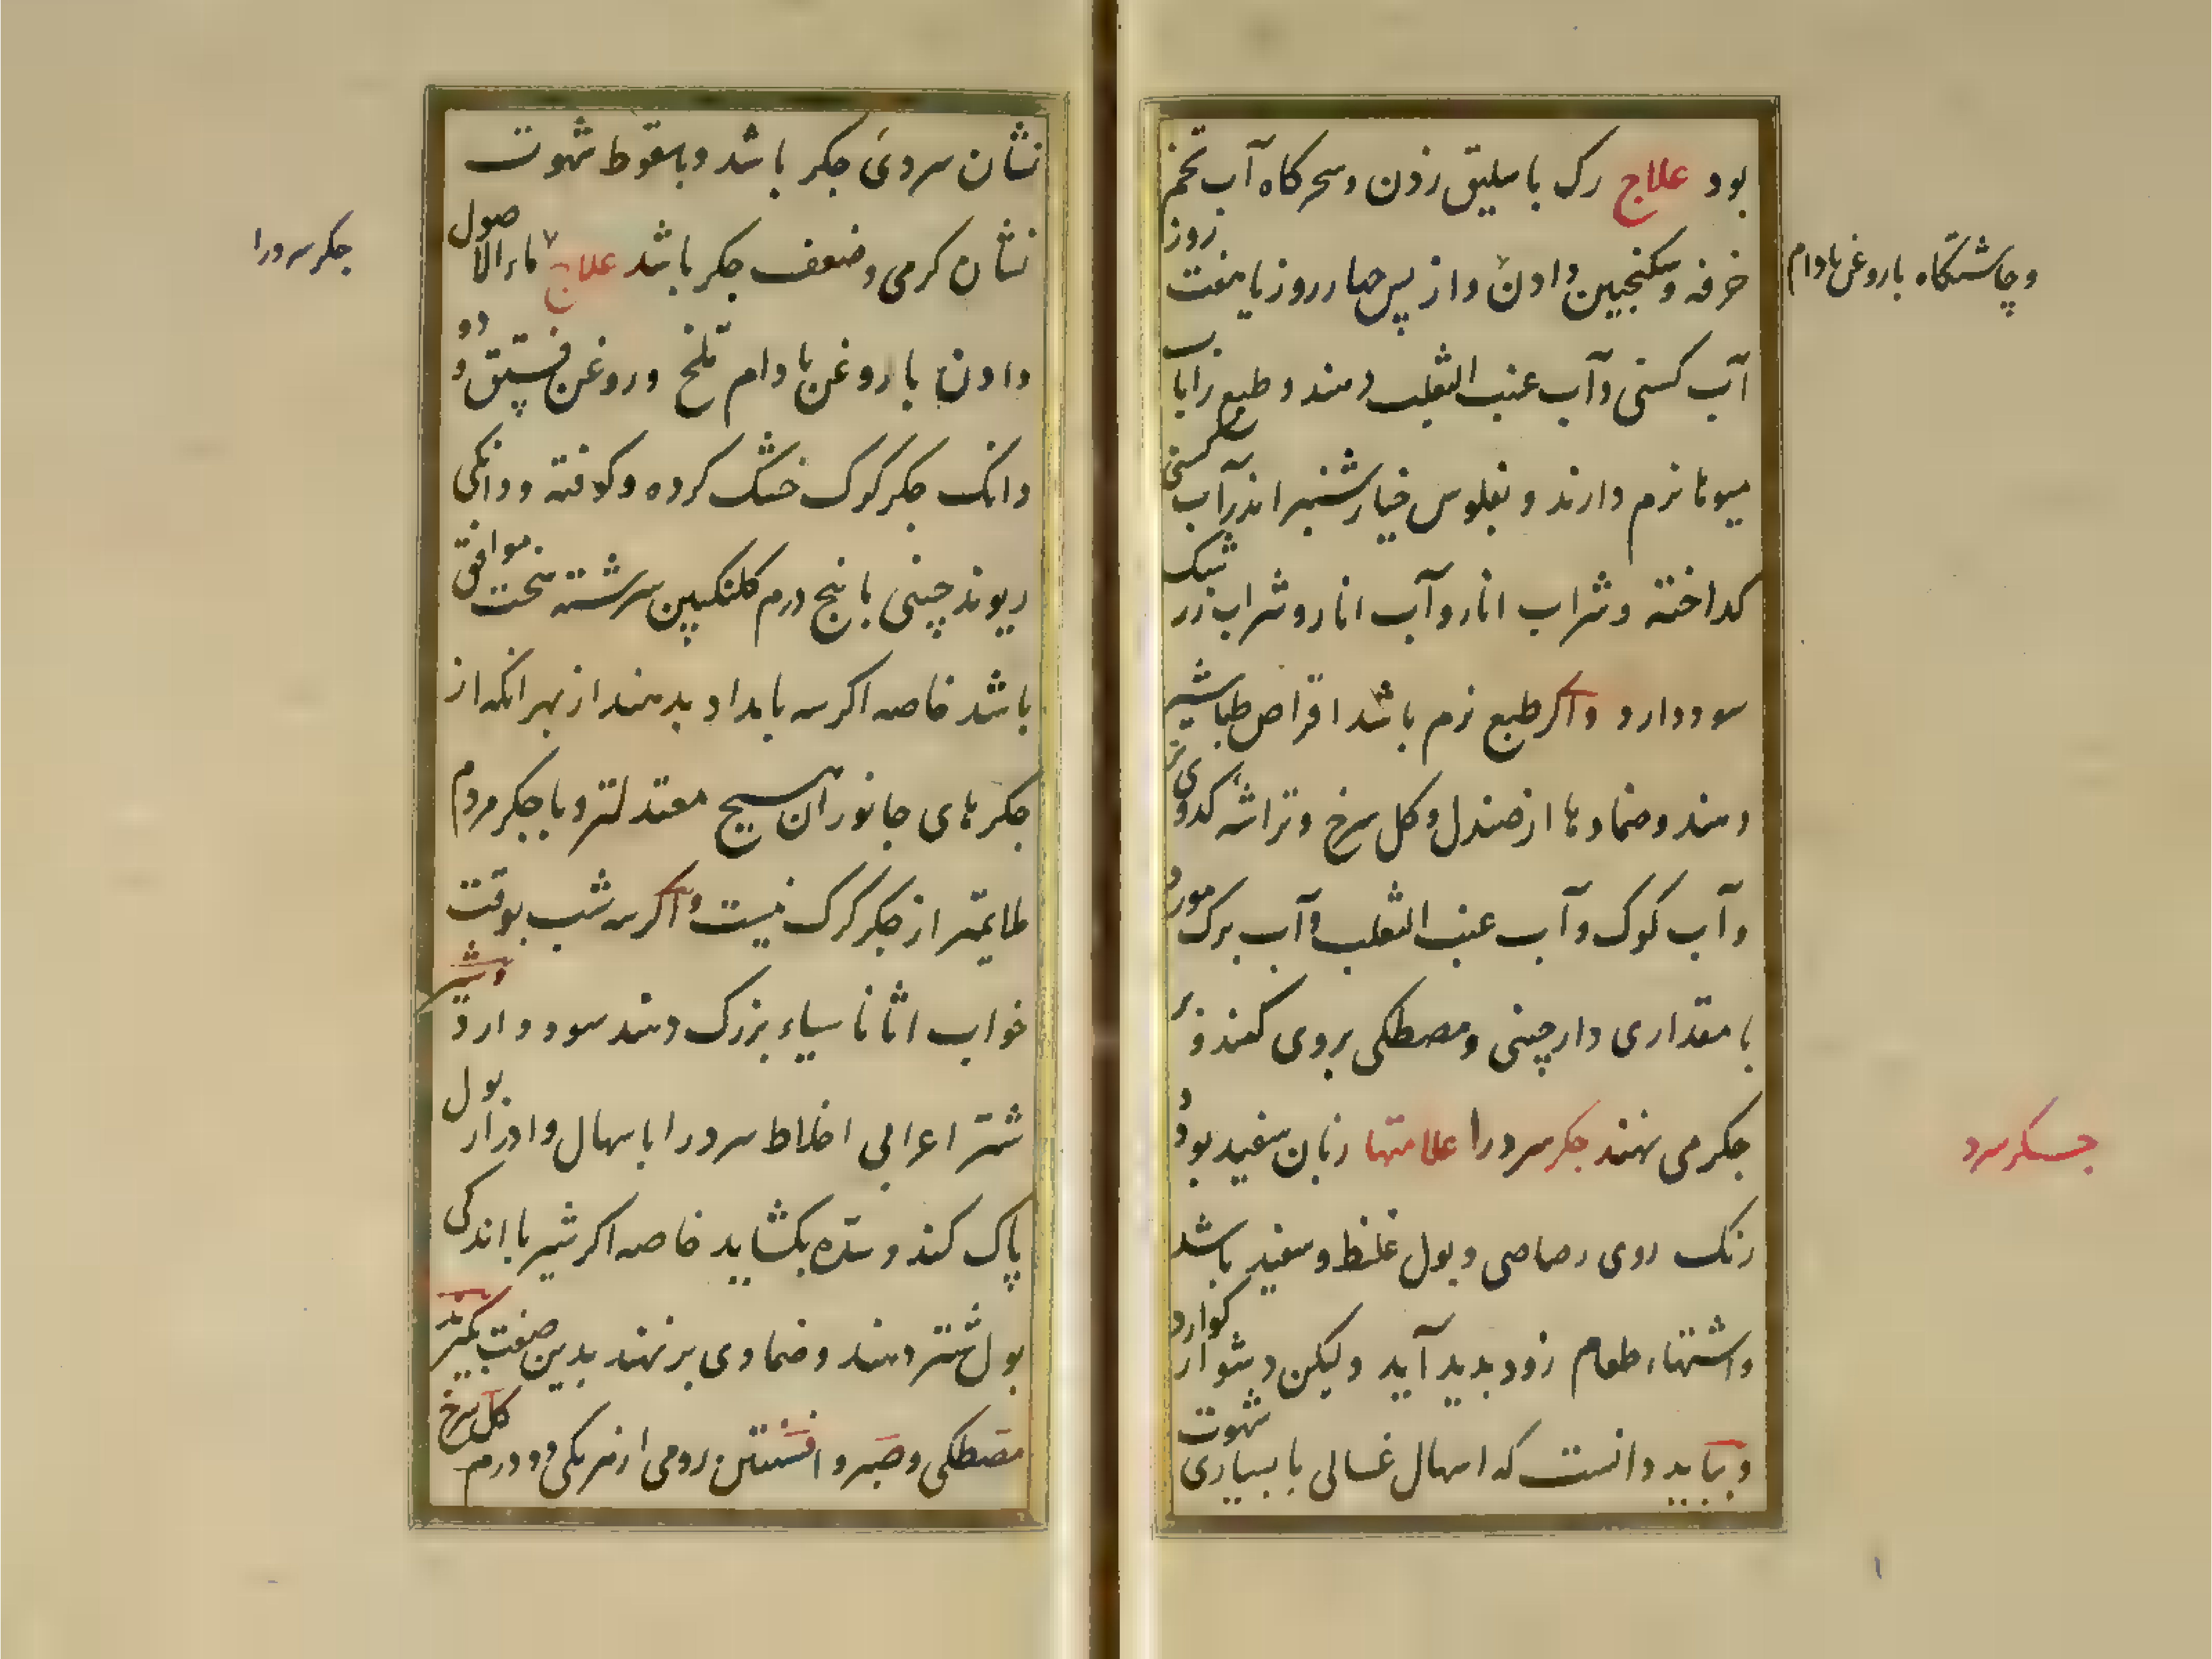 بود علاج رک باسلیق زدن و سحرکاه آب تخم
خرفه و سکنجبین دادن و از پس چهار روز یا هفت روز
و چاشتکاه با روغن بادام
آب کسنی و آب عنب الثعلب دهند و طبع را با
میوها نرم دارند و بفلوس خیارشنبر اندر آب کسنی
کداخته و شراب انار و آب انار و شراب زرشک
سود دارد و اکر طبع نرم باشد اقراص طباشیر
دهند و ضمادها از صندل و کل سرخ و تراشه کدوی تر
و آب کوک و آب عنب الثعلب و آب برک مورد
با مقداری دارچینی و مصطکی بروی کنند و بر
جکر می نهند جکر سرد را علامتها زبان سفید بود و
جسکر سرد
رنک روی رصاصی و بول غلظ و سفید باشد
و اشتهاء طعام زود بدید آید ولیکن دشوار کوارد
و بباید دانست که اسهال غسالی با بسیاری شهوت
نشان سردی جکر باشد و باسقوط شهوت
نشان کرمی و ضعف جکر باشد علاج ماء الاصول
جکر سرد را
دادن با روغن بادام تلخ و روغن فستق و دو
دانک جکر کرک خشک کرده و کوفته و دانکی
ریوند چینی با پنج درم کلنکبین سرشته سخت موافق
باشد خاصه اکر سه بامداد بدهند از بهر انکه از
جکرهای جانوران هیچ معتدلتر و با جکر مردم
ملایمتر از جکر کرک نیست و اکر سه شب بوقت
خواب اثاناسیاء بزرک دهند سود دارد و شیر
شتر اعرابی اخلاط سرد را باسهال و ادرار بول
پاک کند و سده بکشاید خاصه اکر شیر با اندکی
بول شتر دهند و ضمادی بر نهند بدین صفت بکیرند
مصطکی و صبر و افسنتین رومی از هر یکی دو درم کل سرخ